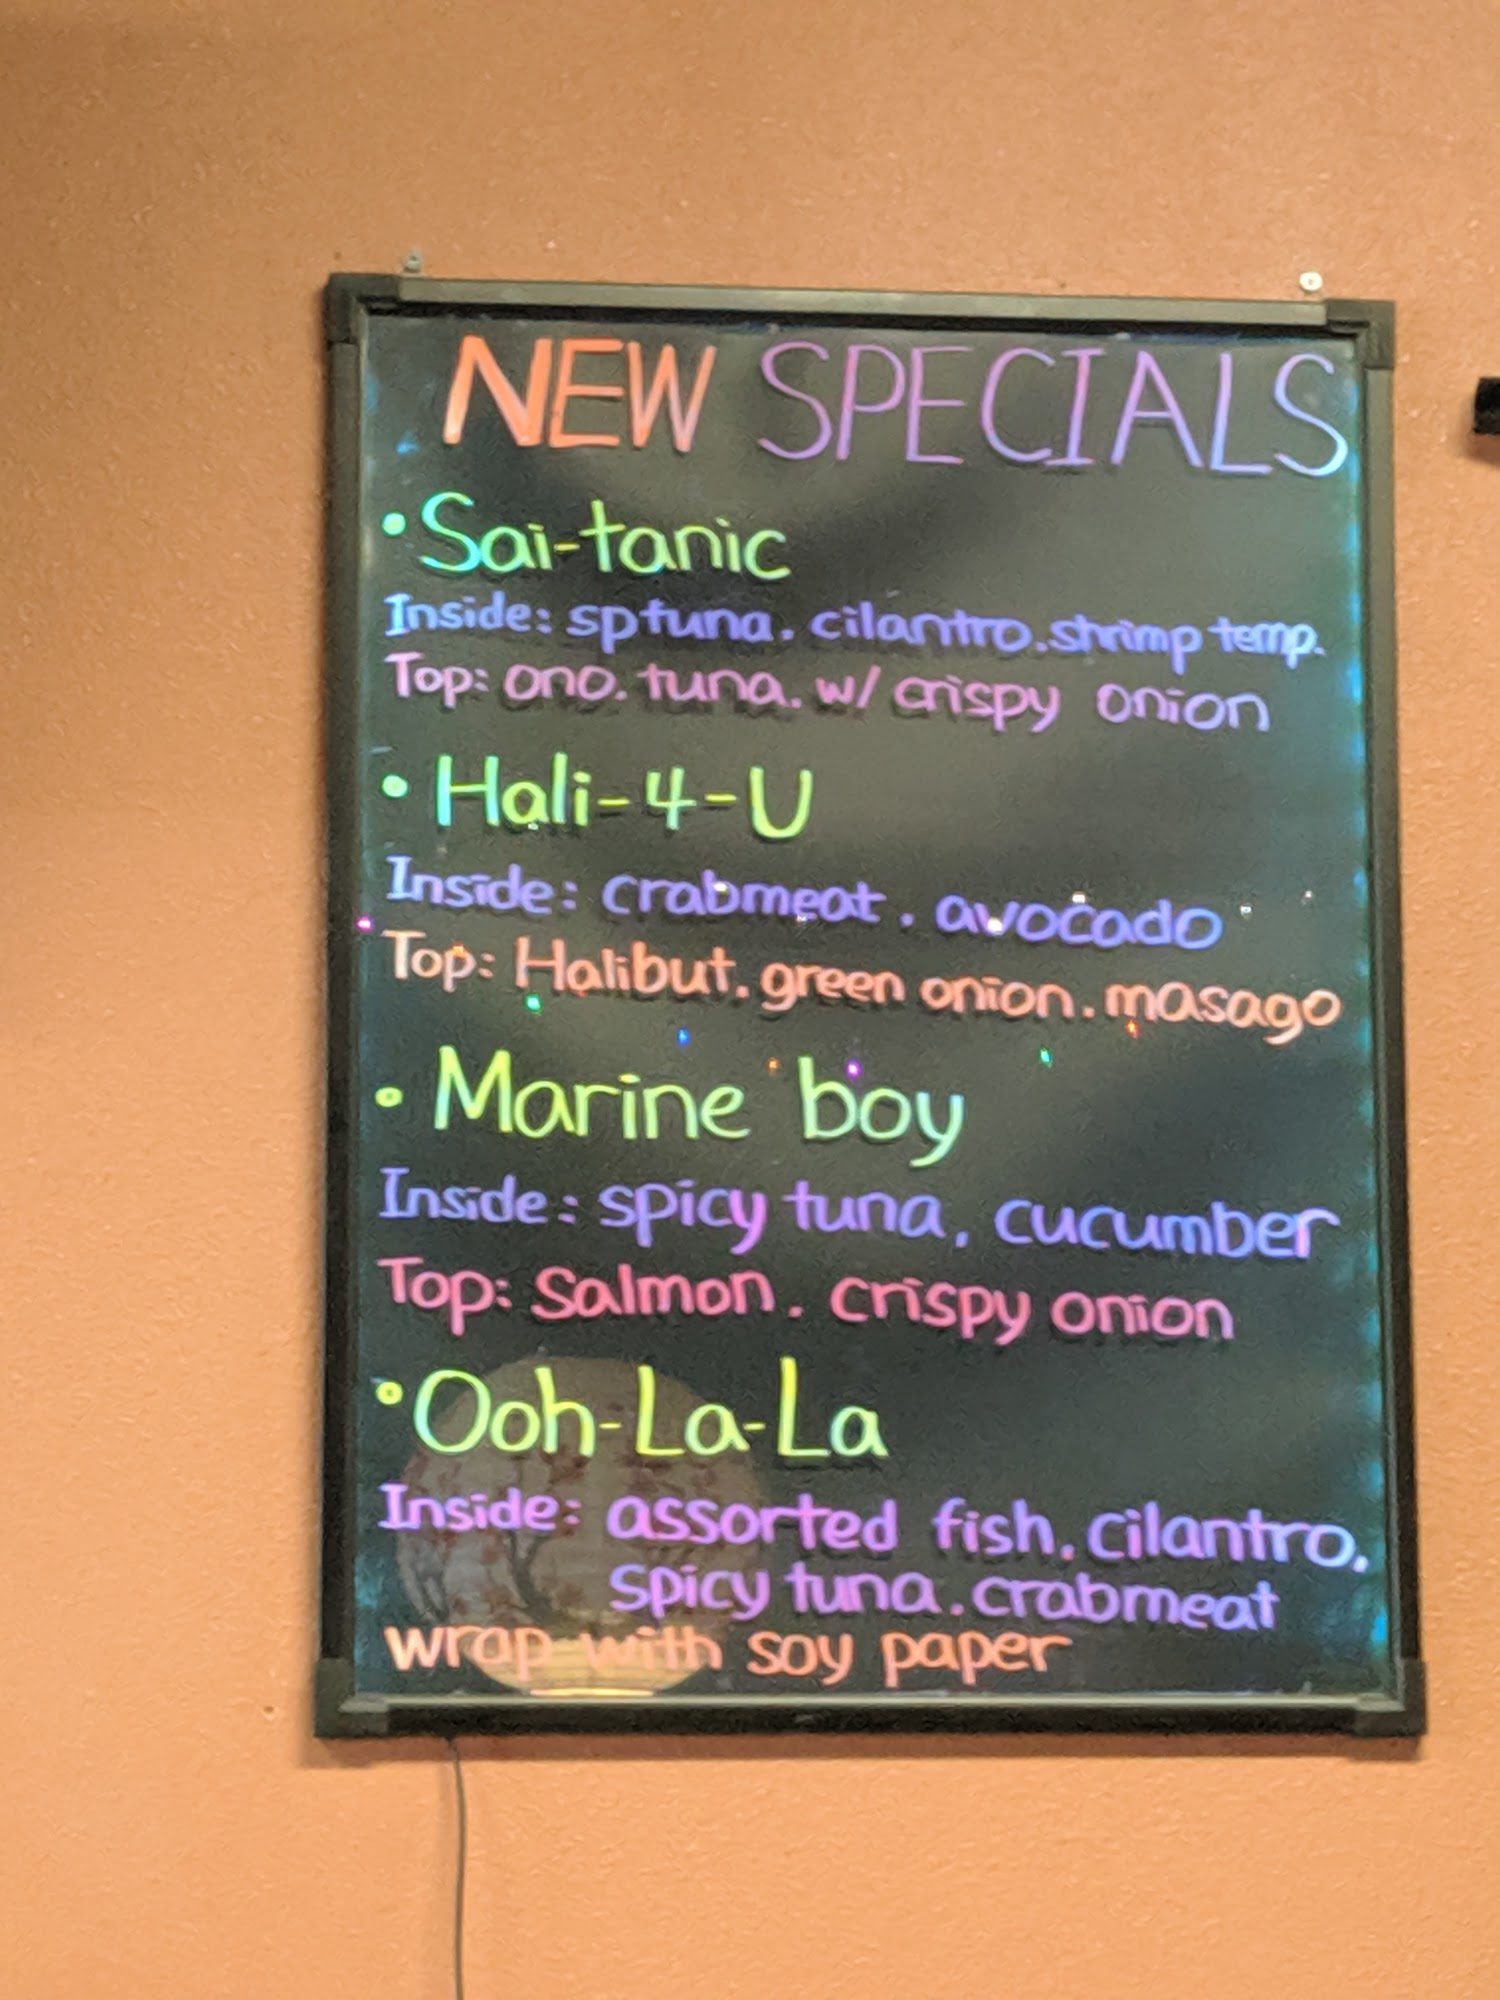 NEW SPECIALS
• Sai-tanic
Inside: sp tuna. cilantro. shrimp temp.
Top: ono. tuna. w/ crispy onion
• Hali-4-U
Inside: crabmeat. avocado
Top: Halibut. green onion. masago
• Marine boy
Inside: spicy tuna, cucumber
Top: Salmon. crispy onion
• Ooh-La-La
Inside: assorted fish. cilantro.
spicy tuna. crabmeat
wrap with soy paper